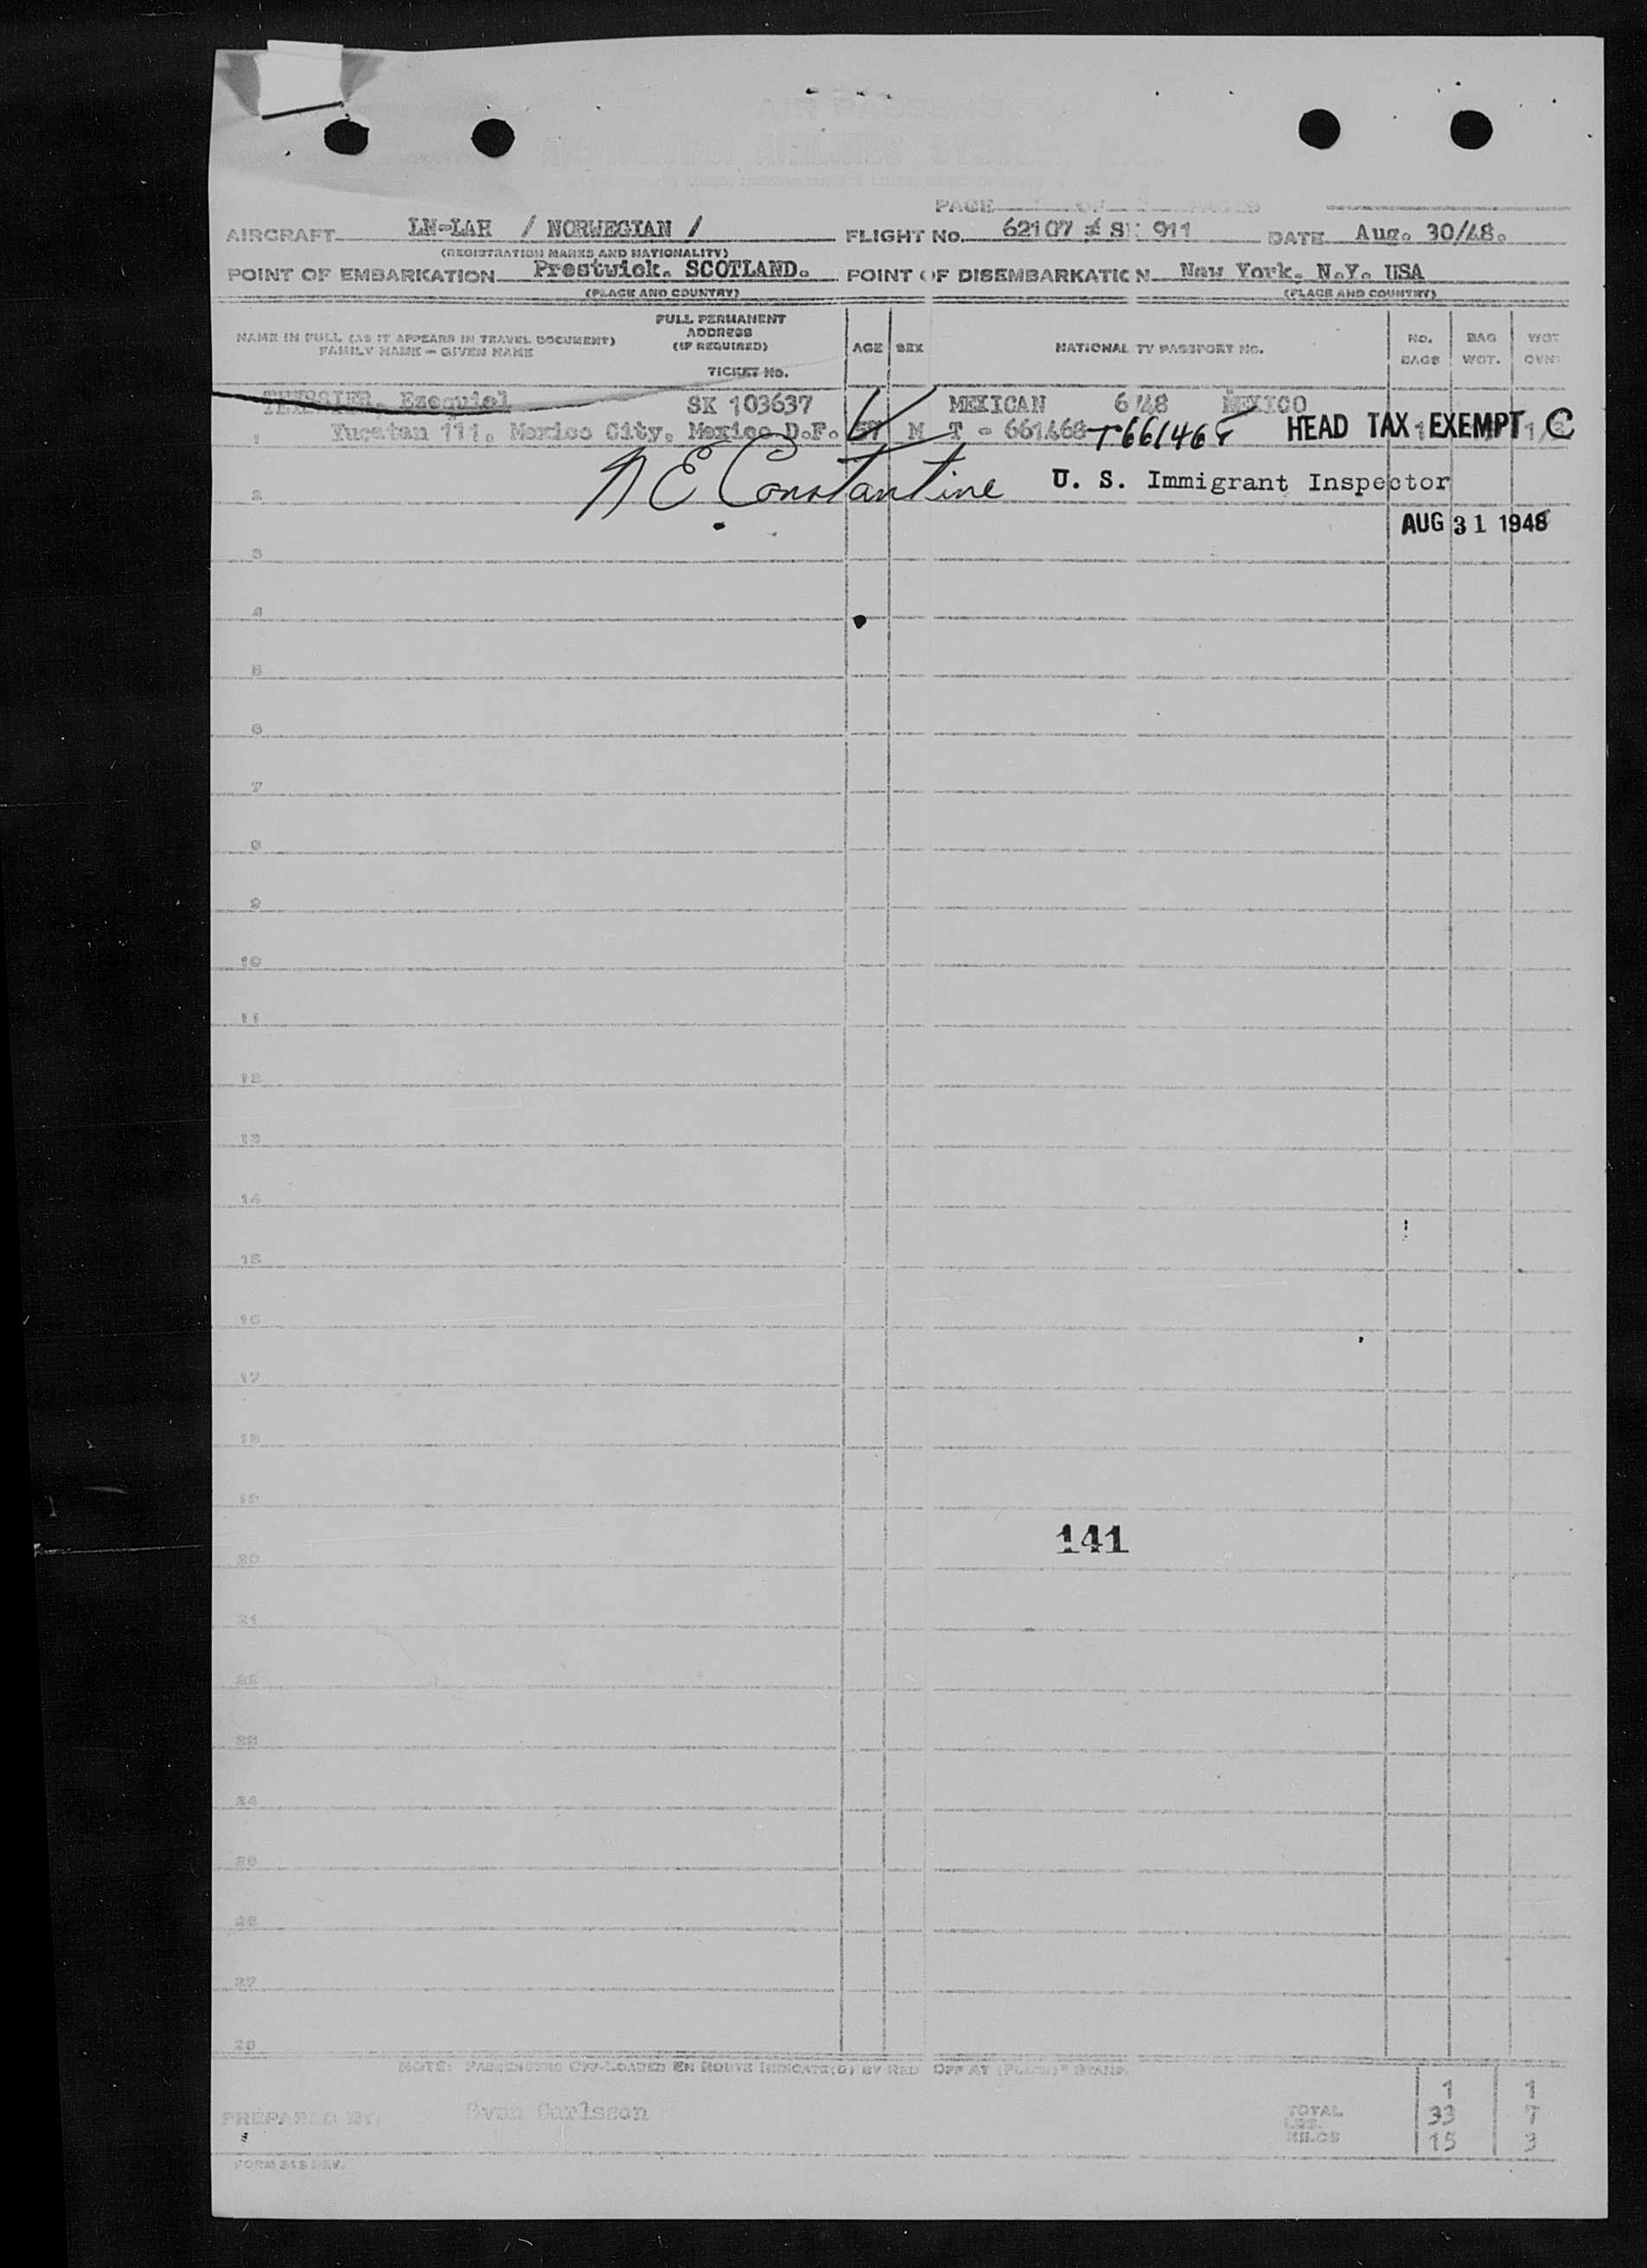 AIR PASSENGER
AIRLINES SYSTEM
PAGE OF PAGES
AIRCRAFT LN-LAH / NORWEGIAN / FLIGHT No. 62107 SK 911 DATE Aug. 30/48.
(REGISTRATION MARKS AND NATIONALITY)
POINT OF EMBARKATION Prestwick. SCOTLAND. POINT OF DISEMBARKATION New York. N.Y. USA
(PLACE AND COUNTRY) (PLACE AND COUNTRY)
NAME IN FULL (AS IT APPEARS IN TRAVEL DOCUMENT) FAMILY NAME - GIVEN NAME
FULL PERMANENT ADDRESS (IF REQUIRED) TICKET No.
AGE SEX NATIONALITY PASSPORT NO. NO. BAGS BAG WGT. WGT OVN
Ezequiel SK 103637 MEXICAN 6 48 MEXICO
1 Yucatan 111. Mexico City. Mexico D.F. 57 M T - 661468 T661468 HEAD TAX EXEMPT C
N E Constantine U. S. Immigrant Inspector
2
AUG 31 1948
3
4
5
6
7
8
9
10
11
12
13
14
15
16
17
18
19
141
20
21
22
23
24
25
26
27
28
NOTE: PASSENGERS OFF-LOADED EN ROUTE INDICATE(D) BY RED OFF AT (PLACE)" STAMP.
1 1
PREPARED BY: Sven Carlsson TOTAL LBS. 33 7
KILOS 15 3
FORM 318 REV.